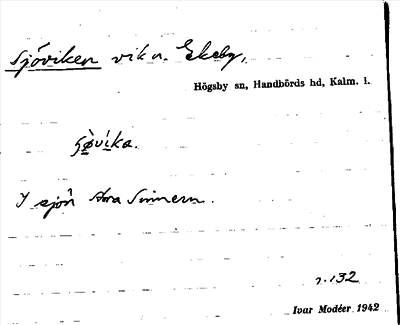 Sjöviken vik n. Ekeby,
Högsby sn, Handbörds hd, Kalm. l.
I sjön Stora Sinnern.
Ivar Modéer 1942